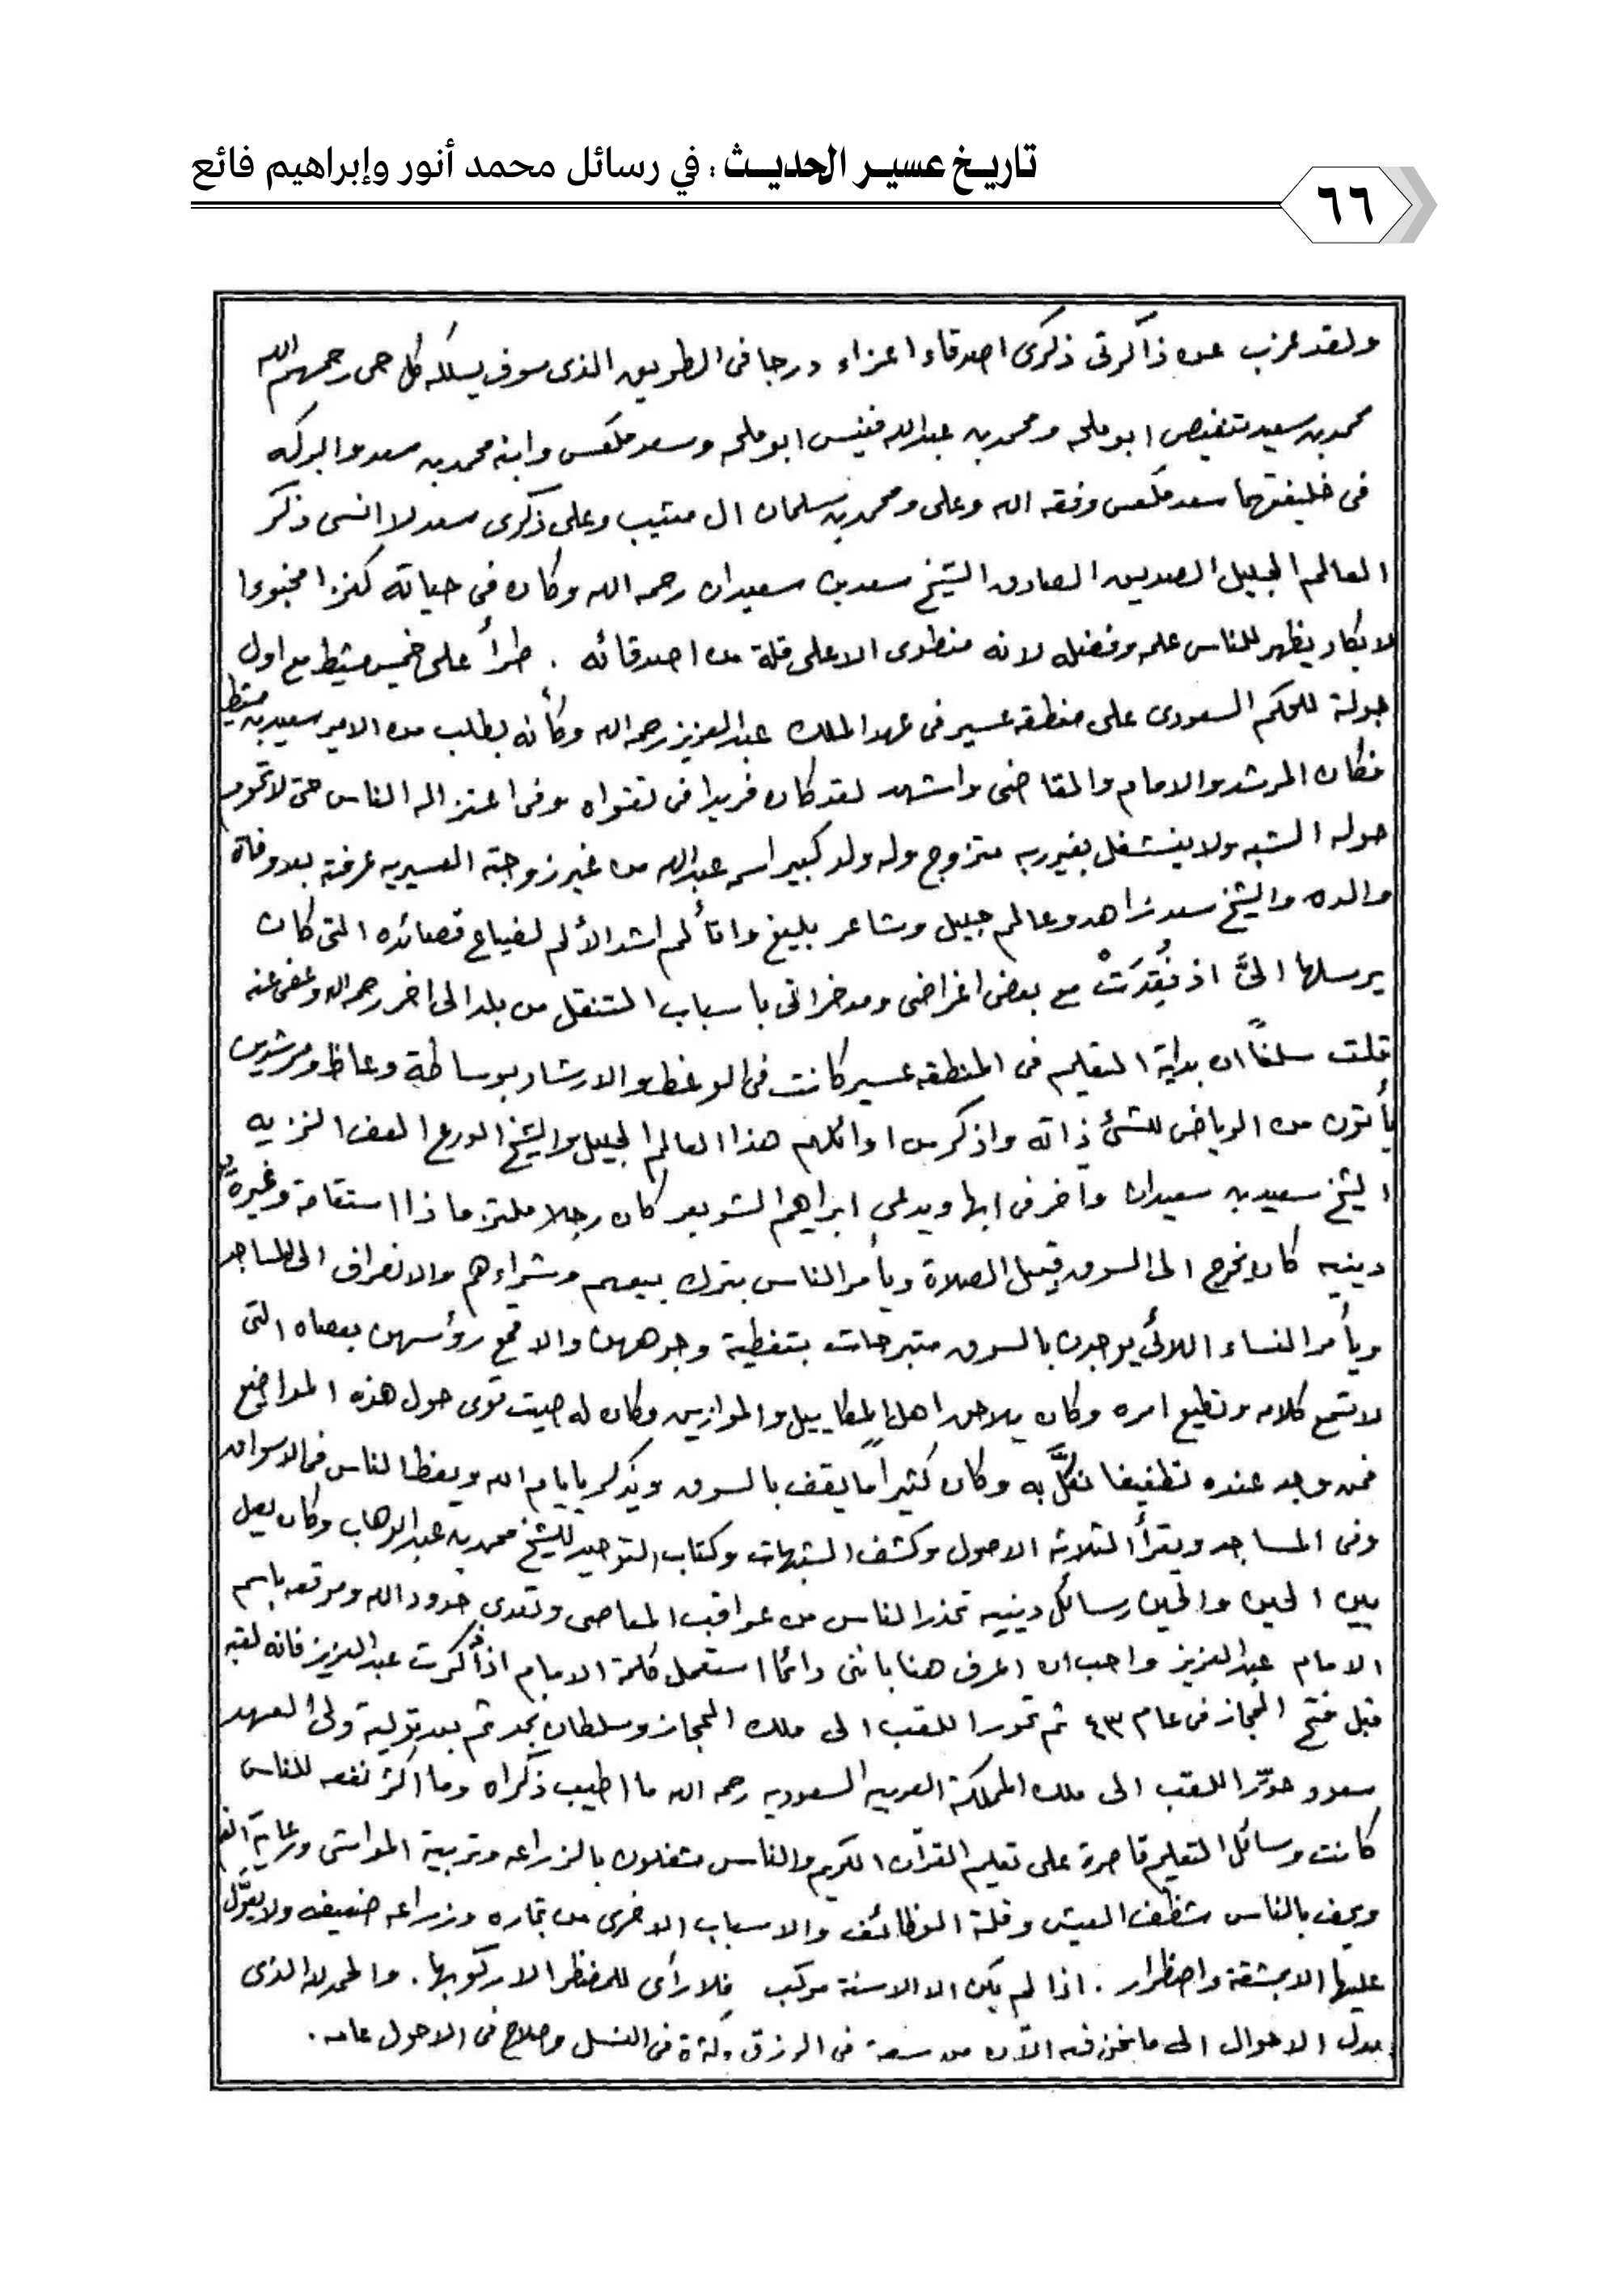 تاريخ عسير الحديث : في رسائل محمد أنور وإبراهيم فائع
٦٦
ولقد عزب عن ذاكرتى ذكرى اصدقاء اعزاء درجا فى الطريق الذى سوف يسلكه كل حى رحمهم الله
محمد بن سعيد ابو ملحه ومحمد بن عبدالله ابو ملحه وسعد ملعس وابنه محمد بن سعد والبركه
فى خليفتهما سعد ملعس وفقه الله وعلى ومحمد بن سلمان ال متيب وعلى ذكرى سعد لا انسى ذكر
العالم الجليل الصديق الصادق الشيخ سعد بن سعيدان رحمه الله وكان فى حياته كنزا مخبوءا
لا يكاد يظهر للناس علمه وفضله لانه منطوى الا على قلة من اصدقائه . طرأ على خميس مشيط مع اول
جولة للحكم السعودى على منطقة عسير فى عهد الملك عبدالعزيز رحمه الله وكأنه بطلب من الامير سعيد بن مشيط
فكان المرشد والامام والقاضى واشهد لقد كان فريدا فى تقواه وفى اعتزاله الناس حتى لا تحوم
حوله الشبه ولا ينشغل بغير ربه متزوج وله ولد كبير اسمه عبدالله من غير زوجته العسيريه عرفته بعد وفاة
والده والشيخ سعد زاهد وعالم جليل وشاعر بليغ واتألم اشد الألم لضياع قصائده التى كان
يرسلها الىَّ اذ فُقِدَتْ مع بعض اغراضى ومدخراتى باسباب التنقل من بلد الى اخر رحمه الله وعفى عنه
قلت سلفاً ان بداية التعليم فى المنطقه عسير كانت فى الوعظ والارشاد بوساطة وعاظ ومرشدين
يأتون من الرياض للشئ ذاته واذكر من اوائلهم هذا العالم الجليل والشيخ الورع العف النزيه
الشيخ سعيد بن سعيدان واخر فى ابها ويدعى ابراهيم الشويعر كان رجلا ملتزما ذا استقامة وغيرةٍ
دينيه كان يخرج الى السوق قبيل الصلاة ويأمر الناس بترك بيعهم وشراءهم والانصراف الى المساجد
ويأمر النساء اللائى يوجدن بالسوق متبرجات بتغطية وجوههن والا قمع رؤسهن بعصاه التى
لا تسمع كلامه وتطيع امره وكان يلاحق اهل المكاييل والموازين وكان له صيت قوى حول هذه المواضيع
فمن وجد عنده تطفيفا نكَّل به وكان كثيراً ما يقف بالسوق ويذكر بايام الله ويعظ الناس فى الاسواق
وفى المساجد ويقرأ الثلاثه الاصول وكشف الشبهات وكتاب التوحيد للشيخ محمد بن عبدالوهاب وكان يصل
بين الحين والحين رسائل دينيه تحذر الناس من عواقب المعاصى وتعدى حدود الله وموقعه باسم
الامام عبدالعزيز واحب ان اعرف هنا باننى دائما استعمل كلمة الامام اذا ذكرت عبدالعزيز فانه لقبه
قبل فتح الحجاز فى عام ٤٣ ثم تحورا للقب الى ملك الحجاز وسلطان نجد ثم بعد تولية ولى العهد
سعود حوّر اللقب الى ملك المملكة العربيه السعوديه رحمه الله ما اطيب ذكراه وما اكثر نفعه للناس
كانت وسائل التعليم قاصرة على تعليم القرآن الكريم والناس منشغلون بالزراعه وتربية المواشى ورعاية الغنم
ويحف بالناس شظف العيش وقلة الوظائف والاسباب الاخرى من تجاره وزراعه ضعيفه ولا يعوَّل
عليها الا بمشقة واضطرار . اذا لم يكن الا الاسنة مركب فلا رأى للمضطر الا ركوبها . والحمد لله الذى
بدل الاحوال الى ما نحن فيه الآن من سعة فى الرزق وكثرة فى النسل وصلاح فى الاحول عامه .